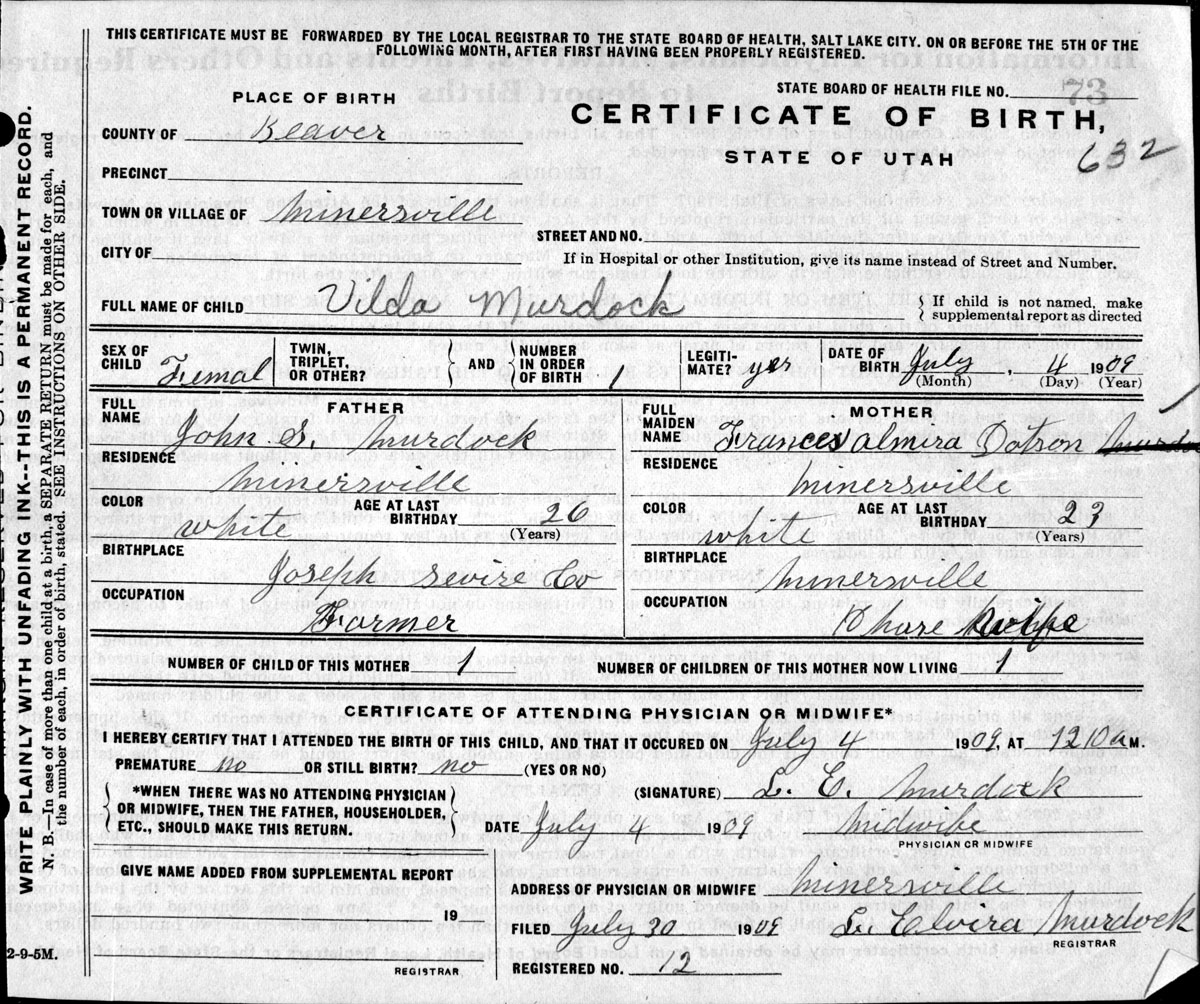 THIS CERTIFICATE MUST BE FORWARDED BY THE LOCAL REGISTRAR TO THE STATE BOARD OF HEALTH, SALT LAKE CITY. ON OR BEFORE THE 5TH OF THE
FOLLOWING MONTH, AFTER FIRST HAVING BEEN PROPERLY REGISTERED.
STATE BOARD OF HEALTH FILE NO. 73
PLACE OF BIRTH
CERTIFICATE OF BIRTH,
COUNTY OF Beaver
STATE OF UTAH 632
PRECINCT
TOWN OR VILLAGE OF Minersville
STREET AND NO.
CITY OF
If in Hospital or other Institution, give its name instead of Street and Number.
FULL NAME OF CHILD Vilda Murdock { If child is not named, make supplemental report as directed
SEX OF CHILD Femal TWIN, TRIPLET, OR OTHER? AND NUMBER IN ORDER OF BIRTH 1 LEGITI-MATE? yes DATE OF BIRTH July 4 1909
(Month) (Day) (Year)
FATHER
FULL NAME John S. Murdock
RESIDENCE Minersville
COLOR white AGE AT LAST BIRTHDAY 26 (Years)
BIRTHPLACE Joseph Sevire Co
OCCUPATION Farmer
MOTHER
FULL MAIDEN NAME Frances Almira Dotson
RESIDENCE Minersville
COLOR white AGE AT LAST BIRTHDAY 23 (Years)
BIRTHPLACE Minersville
OCCUPATION
NUMBER OF CHILD OF THIS MOTHER 1 NUMBER OF CHILDREN OF THIS MOTHER NOW LIVING 1
CERTIFICATE OF ATTENDING PHYSICIAN OR MIDWIFE*
I HEREBY CERTIFY THAT I ATTENDED THE BIRTH OF THIS CHILD, AND THAT IT OCCURED ON July 4 1909, AT 1210 a M.
PREMATURE no OR STILL BIRTH? no (YES OR NO)
*WHEN THERE WAS NO ATTENDING PHYSICIAN
OR MIDWIFE, THEN THE FATHER, HOUSEHOLDER,
ETC., SHOULD MAKE THIS RETURN.
(SIGNATURE) L. E. Murdock
DATE July 4 1909 Midwibe
PHYSICIAN OR MIDWIFE
GIVE NAME ADDED FROM SUPPLEMENTAL REPORT
19
REGISTRAR
ADDRESS OF PHYSICIAN OR MIDWIFE Minersville
FILED July 20 1909 L. Elvira Murdock
REGISTRAR
REGISTERED NO. 12
2-9-5M.
WRITE PLAINLY WITH UNFADING INK--THIS IS A PERMANENT RECORD.
N. B.—In case of more than one child at a birth, a SEPARATE RETURN must be made for each, and
the number of each, in order of birth, stated. SEE INSTRUCTIONS ON OTHER SIDE.